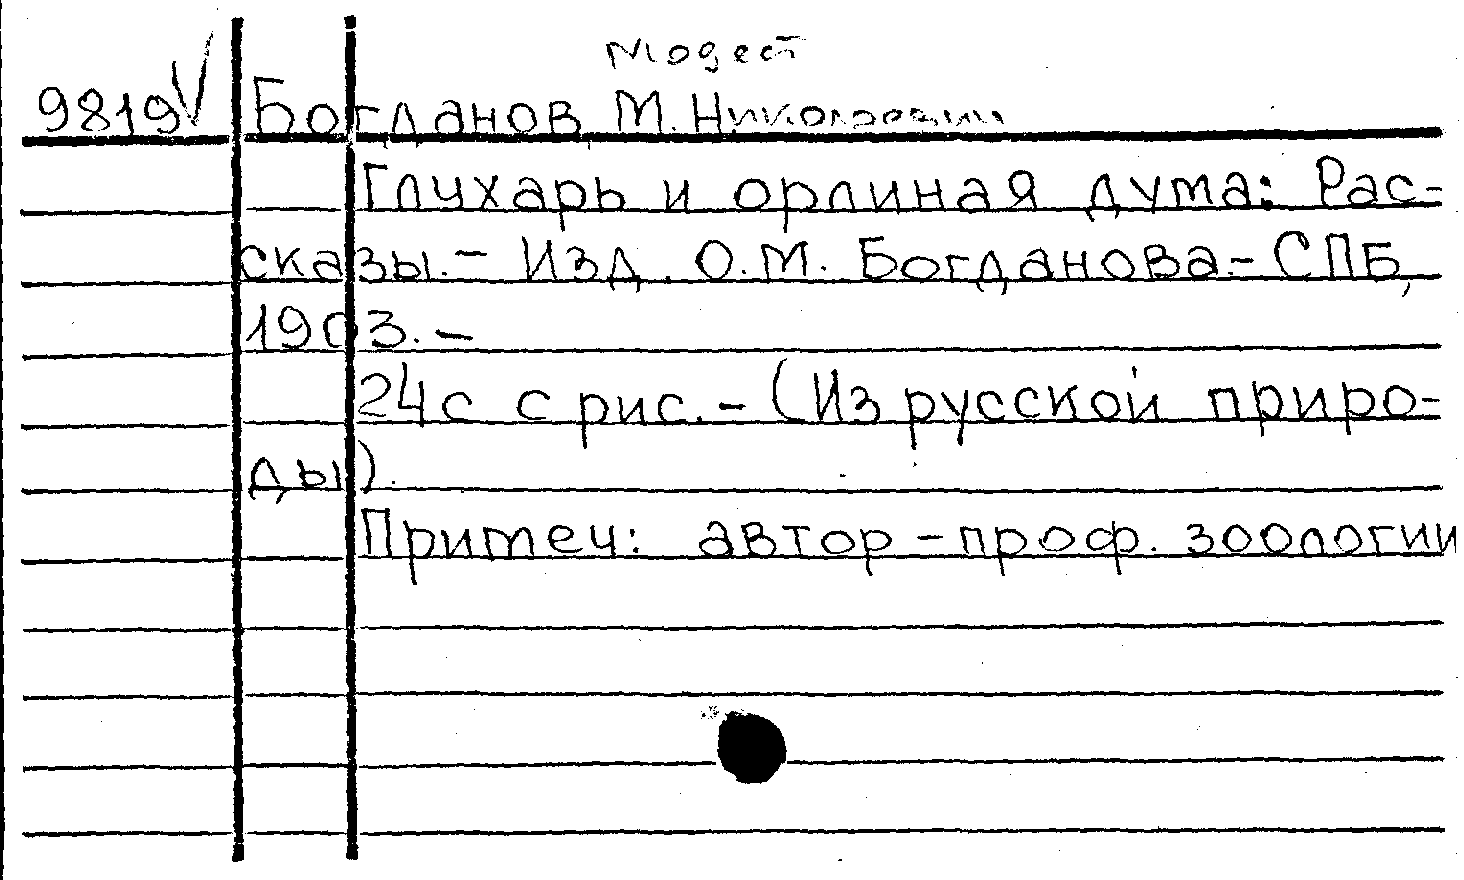 Модест
9819 V Богданов М. Николаевич
Глухарь и орлиная дума: Рас-
сказы.- Изд. О.М. Богданова.- СПБ,
1903.-
24с с рис.- (Из русской приро-
ды).
Примеч: автор - проф. зоологии